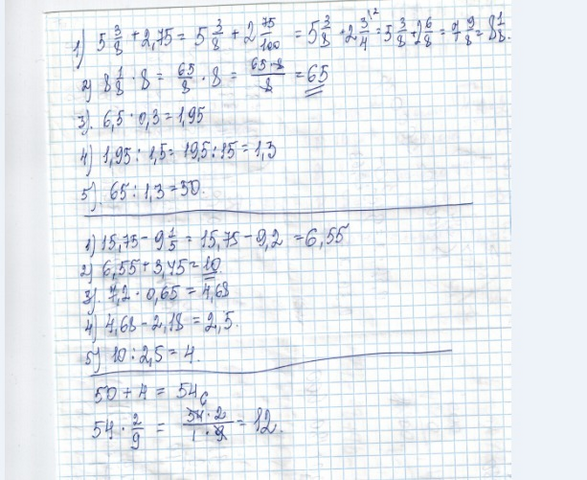 1) 5 3/8 + 2,75 = 5 3/8 + 2 75/100 = 5 3/8 + 2 3/4^12 = 5 3/8 + 2 6/8 = 7 9/8 = 8 1/8.
2) 8 1/8 · 8 = 65/8 · 8 = 65·8/8 = 65
3). 6,5 · 0,3 = 1,95
4) 1,95 : 1,5 = 19,5 : 15 = 1,3
5). 65 : 1,3 = 50.
1) 15,75 - 9 1/5 = 15,75 - 9,2 = 6,55
2) 6,55 + 3,45 = 10
3). 7,2 · 0,65 = 4,68
4) 4,68 - 2,18 = 2,5.
5) 10 : 2,5 = 4.
50 + 4 = 54
54 · 2/9 = 54^6·2/1·9 = 12.